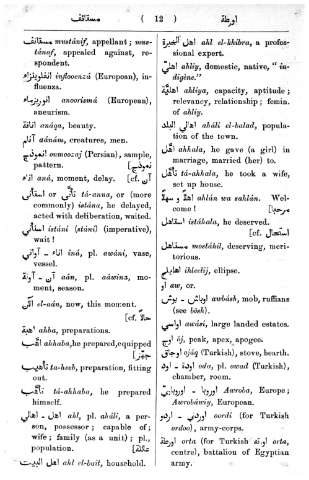 مستأنف ( 12 ) اورطة
مستأنف mustânif, appellant; mus-
tênaf, appealed against, re-
spondent.
انفلوينزاء inflooenzâ (European), in-
fluenza.
انوريزماء anorismâ (European),
aneurism.
اناقة anâqa, beauty.
آنام anâm, creatures, men.
انموذج onmoozaj (Persian), sample,
pattern. [نموذج
آن anâ, moment, delay. [cf.
تأنّى tâ-anna, or (more
commonly) istâna, he delayed,
acted with deliberation, waited.
استأنى istâni (stâni) (imperative),
wait!
اناء - آواني inâ, pl. awâni, vase,
vessel.
آن - آونة aân, pl. aâwina, mo-
ment, season.
الآن el-aân, now, this moment.
[cf. حالاً
اهبة ahba, preparations.
اهّب ahhaba, he prepared, equipped
[جهّز
تأهيب ta-heeb, preparation, fitting
out.
تأهّب tâ-ahhaba, he prepared
himself.
اهل - اهالي ahl, pl. ahâli, a per-
son, possessor; capable of;
wife; family (as a unit); pl.,
population. [عائلة
اهل البيت ahl el-bait, household.
اهل الخبرة ahl el-khibra, a profes-
sional expert.
اهلي ahliy, domestic, native, "in-
digène."
اهلية ahliya, capacity, aptitude;
relevancy, relationship; femin.
of ahliy.
اهالي البلد ahâli el-balad, popula-
tion of the town.
اهّل ahhala, he gave (a girl) in
marriage, married (her) to.
تأهّل tâ-ahhala, he took a wife,
set up house.
اهلاً وسهلاً ahlân wa sahlân. Wel-
come! [مرحبا
استاهل istâhala, he deserved.
[cf. استحقّ
مستاهل mostâhil, deserving, meri-
torious.
اهليلجي ihleelij, ellipse.
او aw, or.
اوباش - بوش awbâsh, mob, ruffians
(see bôsh).
اواسي awâsi, large landed estates.
اوج ôj, peak, apex, apogee.
اوجاق ojâq (Turkish), stove, hearth.
اودة - اود oda, pl. owad (Turkish),
chamber, room.
اوروبا - اوروباوي Awroba, Europe;
Awrobâwiy, European.
اوردي - اردو oordi (for Turkish
ordoo), army-corps.
اورطة orta (for Turkish orta,
centre), battalion of Egyptian
army.